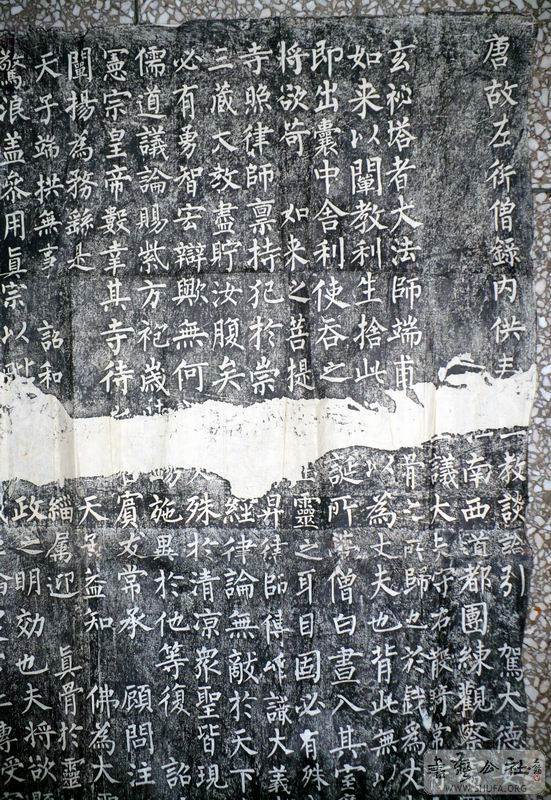 唐故左街僧録内供教談論引 駕大德
南西道都團練觀察
議大夫守右散騎常
玄祕塔者大法師端甫骨之所歸也於戲為丈
如来以闡教利生捨此以為丈夫也背此無以
即出囊中舍利使吞之誕所夢僧白晝入其室
将欲荷 如来之菩提靈之耳目固必有殊
寺照律師禀持犯於崇昇律師傳唯識大義
三藏大教盡貯汝腹矣經律論無敵於天下
必有勇智宏辯歟無何殊於清凉衆聖皆現
儒道議論賜紫方袍歲施異於他等復 詔
憲宗皇帝數幸其寺待賓友常承 顧問注
闡揚為務繇是天子益知 佛為大
天子端拱無事 詔和緇屬迎 真骨於靈
驚浪盖參用真宗以政之明効也夫将欲
傳受
書藝公社
WWW.SHUFA.ORG